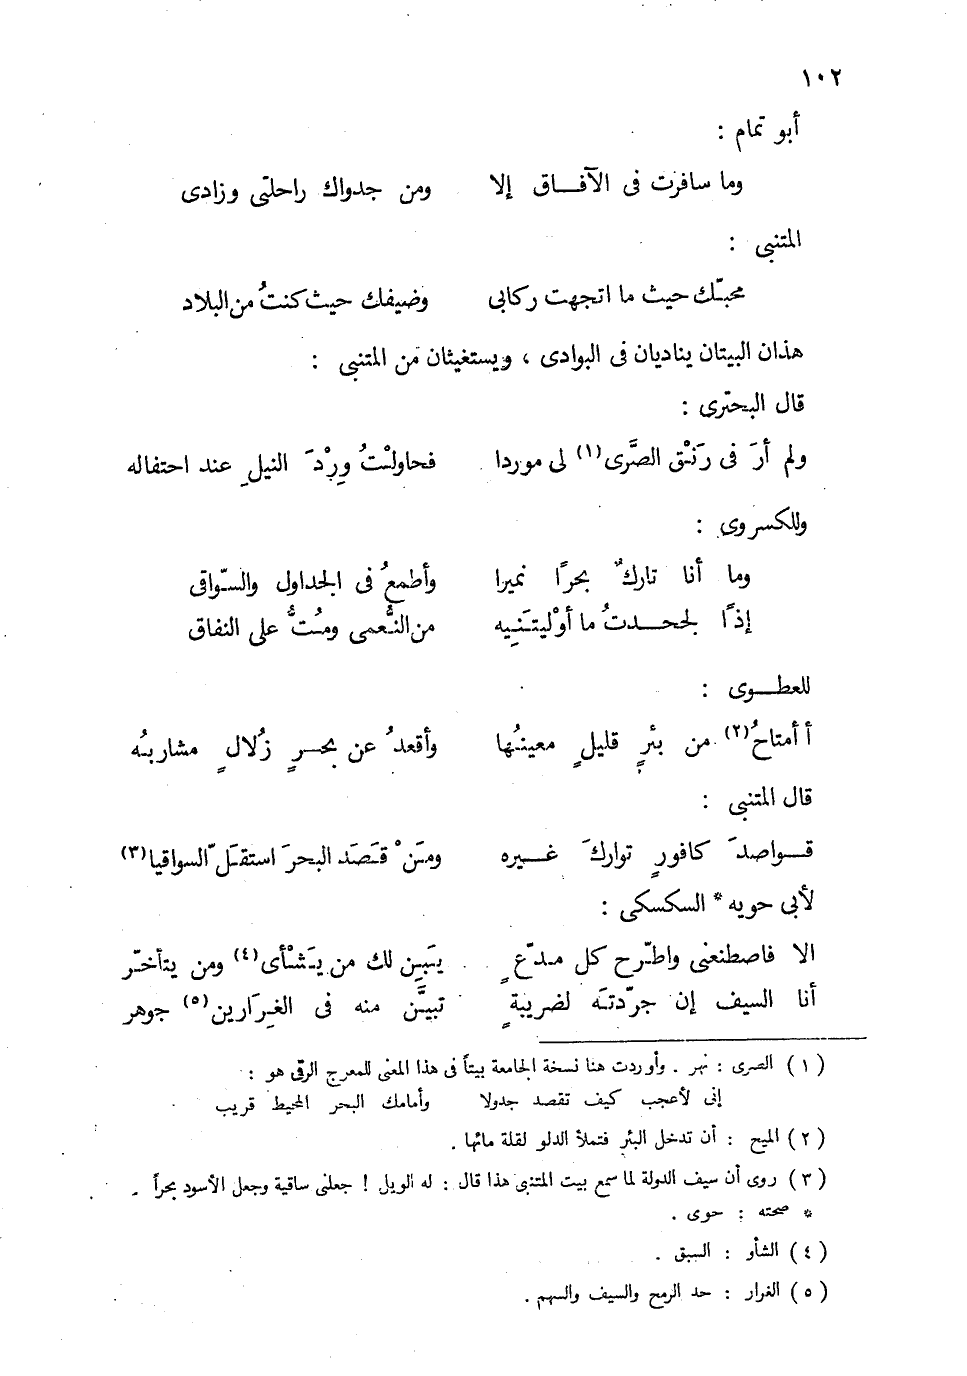 ١٠٢
أبو تمام :
وما سافرت فى الآفـــاق إلا ومن جدواك راحلتى وزادى
المتنبى :
محبّـك حيث ما اتجهت ركابى وضيفك حيث كنتُ من البلاد
هذان البيتان يناديان فى البوادى ، ويستغيثان من المتنبى :
قال البحترى :
ولم أرَ فى رَنْق الصَّرى(١) لى موردا فحاولتُ وِرْدَ النيلِ عند احتفاله
وللكسروى :
وما أنا تاركٌ بحرًا نميرا وأطمعُ فى الجداول والسّواقى
إذًا لجحـــدتُ ما أوْليتَنِيه من النُّعمى ومُتُّ على النفاق
للعطـــوى :
أأمتاحُ(٢) من بئرٍ قليلٍ معينُها وأقعدُ عن بحــرٍ زُلالٍ مشاربُه
قال المتنبى :
قــواصدَ كافورٍ تواركَ غــيره ومَنْ قَصَد البحرَ استقلّ السواقيا(٣)
لأبى حويه * السكسكى :
الا فاصطنعنى واطّرح كل مدّعٍ يَبِن لك من يَشْأى(٤) ومن يتأخّر
أنا السيف إن جرّدتَه لضريبةٍ تبيَّن منه فى الغِرَارين(٥) جوهر
(١) الصرى : نهر . وأوردت هنا نسخة الجامعة بيتاً فى هذا المعنى للمعرج الرقى هو :
إنى لأعجب كيف تقصد جدولا وأمامك البحر المحيط قريب
(٢) الميح : أن تدخل البئر فتملأ الدلو لقلة مائها .
(٣) روى أن سيف الدولة لما سمع بيت المتنبى هذا قال : له الويل ! جعلنى ساقية وجعل الأسود بحراً .
* صحته : حوى .
(٤) الشأو : السبق .
(٥) الغرار : حد الرمح والسيف والسهم .